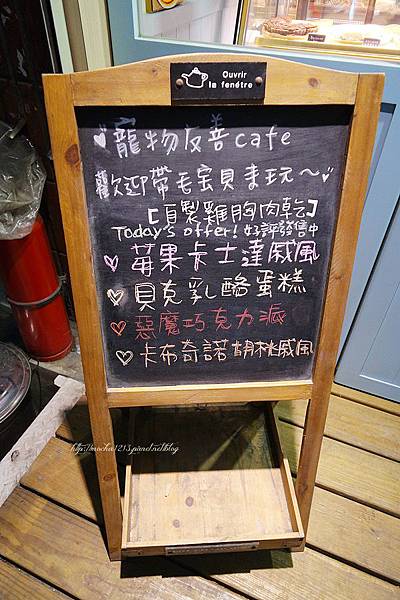 Ouvrir
la fenêtre
寵物友善cafe
歡迎帶毛寶貝來玩~
【自製雞胸肉乾】
Today's offer! 好評發售中
莓果卡士達戚風
貝克乳酪蛋糕
惡魔巧克力派
卡布奇諾胡桃戚風
http://mocha1213.pixnet.net/blog